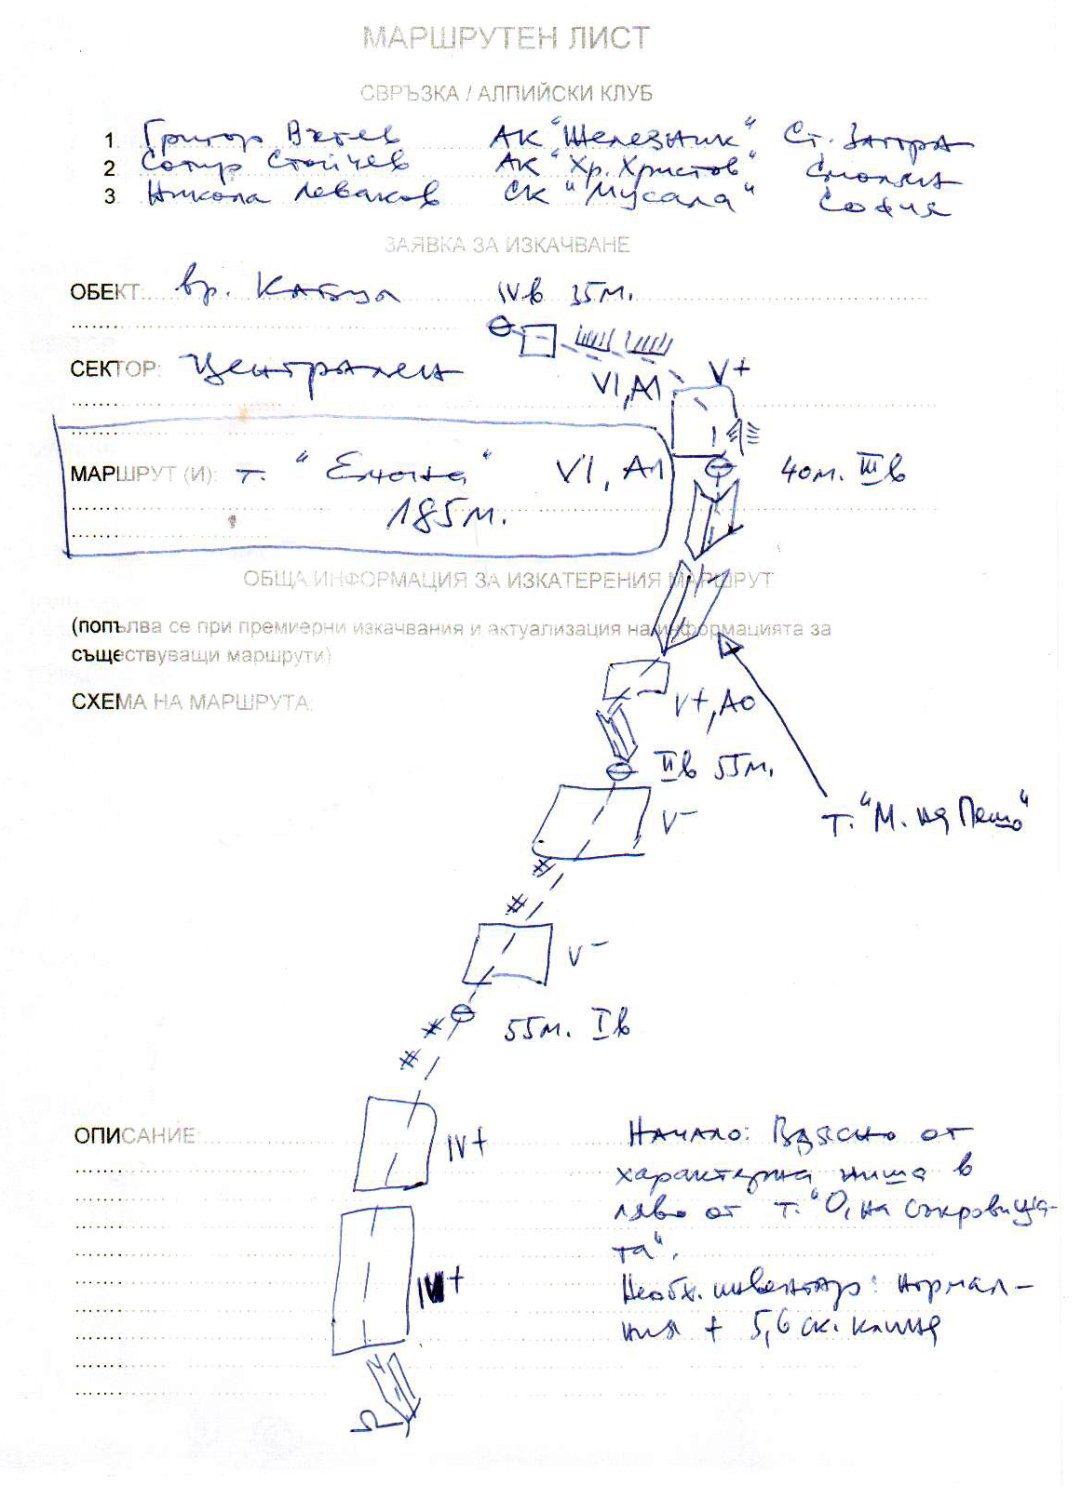 МАРШРУТЕН ЛИСТ
СВРЪЗКА / АЛПИЙСКИ КЛУБ
1 Григор Вътев АК "Железник" Ст. Загора
2 Сотир Стойчев АК "Хр. Христов" Смолян
3 Никола Леваков СК "Мусала" София
ЗАЯВКА ЗА ИЗКАЧВАНЕ
ОБЕКТ: вр. Кабул
IVв 35м.
СЕКТОР: Централен
VI, A1 V+
МАРШРУТ (И): т. "Емона" VI, A1
185м.
40м. IIIв
ОБЩА ИНФОРМАЦИЯ ЗА ИЗКАТЕРЕНИЯ МАРШРУТ
(попълва се при премиерни изкачвания и актуализация на информацията за
съществуващи маршрути)
СХЕМА НА МАРШРУТА:
V+, A0
IIв 55м.
V-
т. "М. на Пешо"
V-
55м. Iв
ОПИСАНИЕ:
IV+
Начало: Вдясно от
характерна ниша в
ляво от т. "О, на съкровища-
та".
IV+
Необх. инвентар: нормал-
ния + 5,6 ск. клина